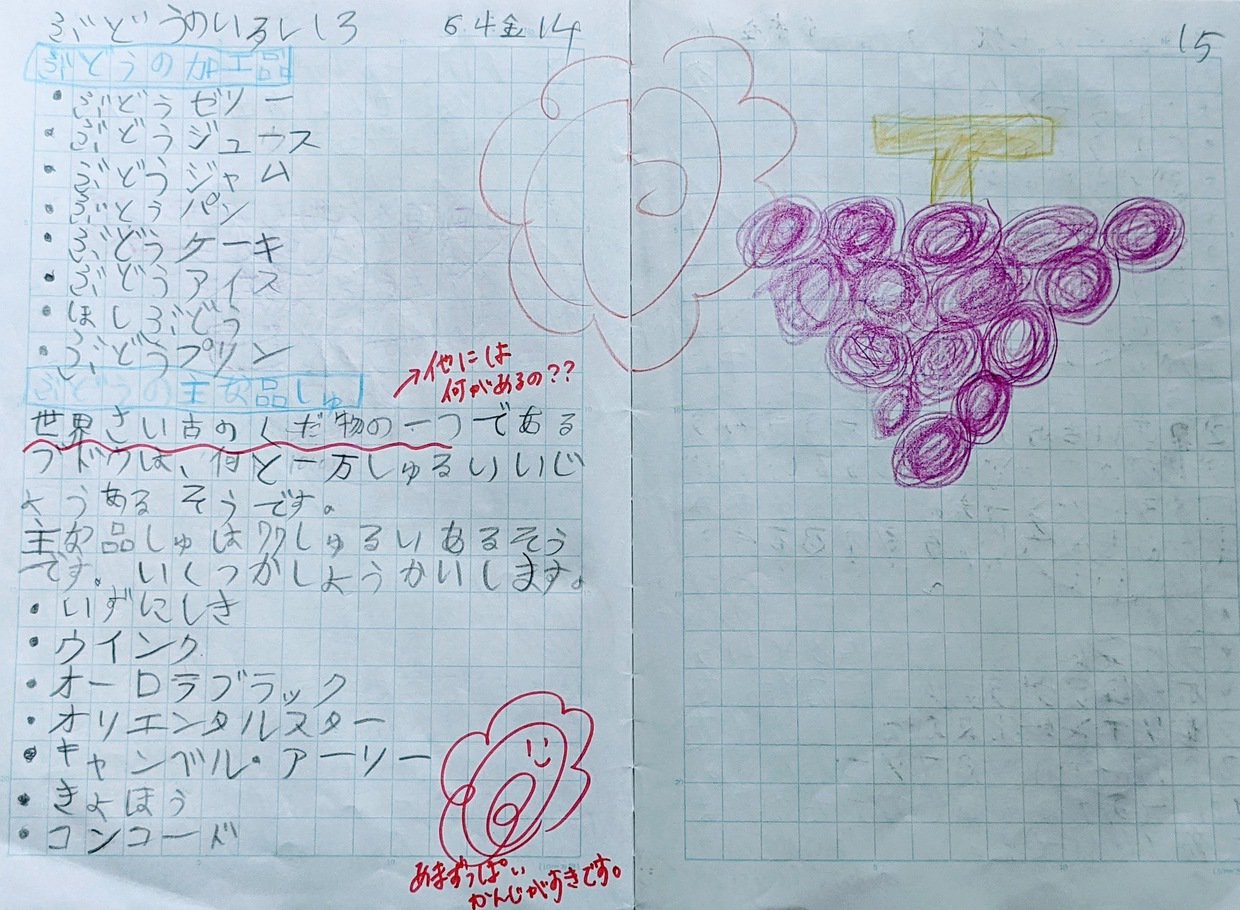 ぶどうのいろいろ 6.4金 14
ぶどうの加工品
・ぶどうゼリー
・ぶどうジュース
・ぶどうジャム
・ぶとうパン
・ぶどうケーキ
・ぶどうアイス
・ほしぶどう
・ぶどうプリン
→他には
何があるの??
ぶどうの主な品しゅ
世界さい古のくだ物の一つである
ブドウは、何と一万しゅるいいじ
ようあるそうです。
主な品しゅは77しゅるいあるそう
です。いくつかしょうかいします。
・いずにしき
・ウインク
・オーロラブラック
・オリエンタルスター
・キャンベル・アーリー
・きよほう
・コンコード
あまずっぱい
かんじがすきです。
15